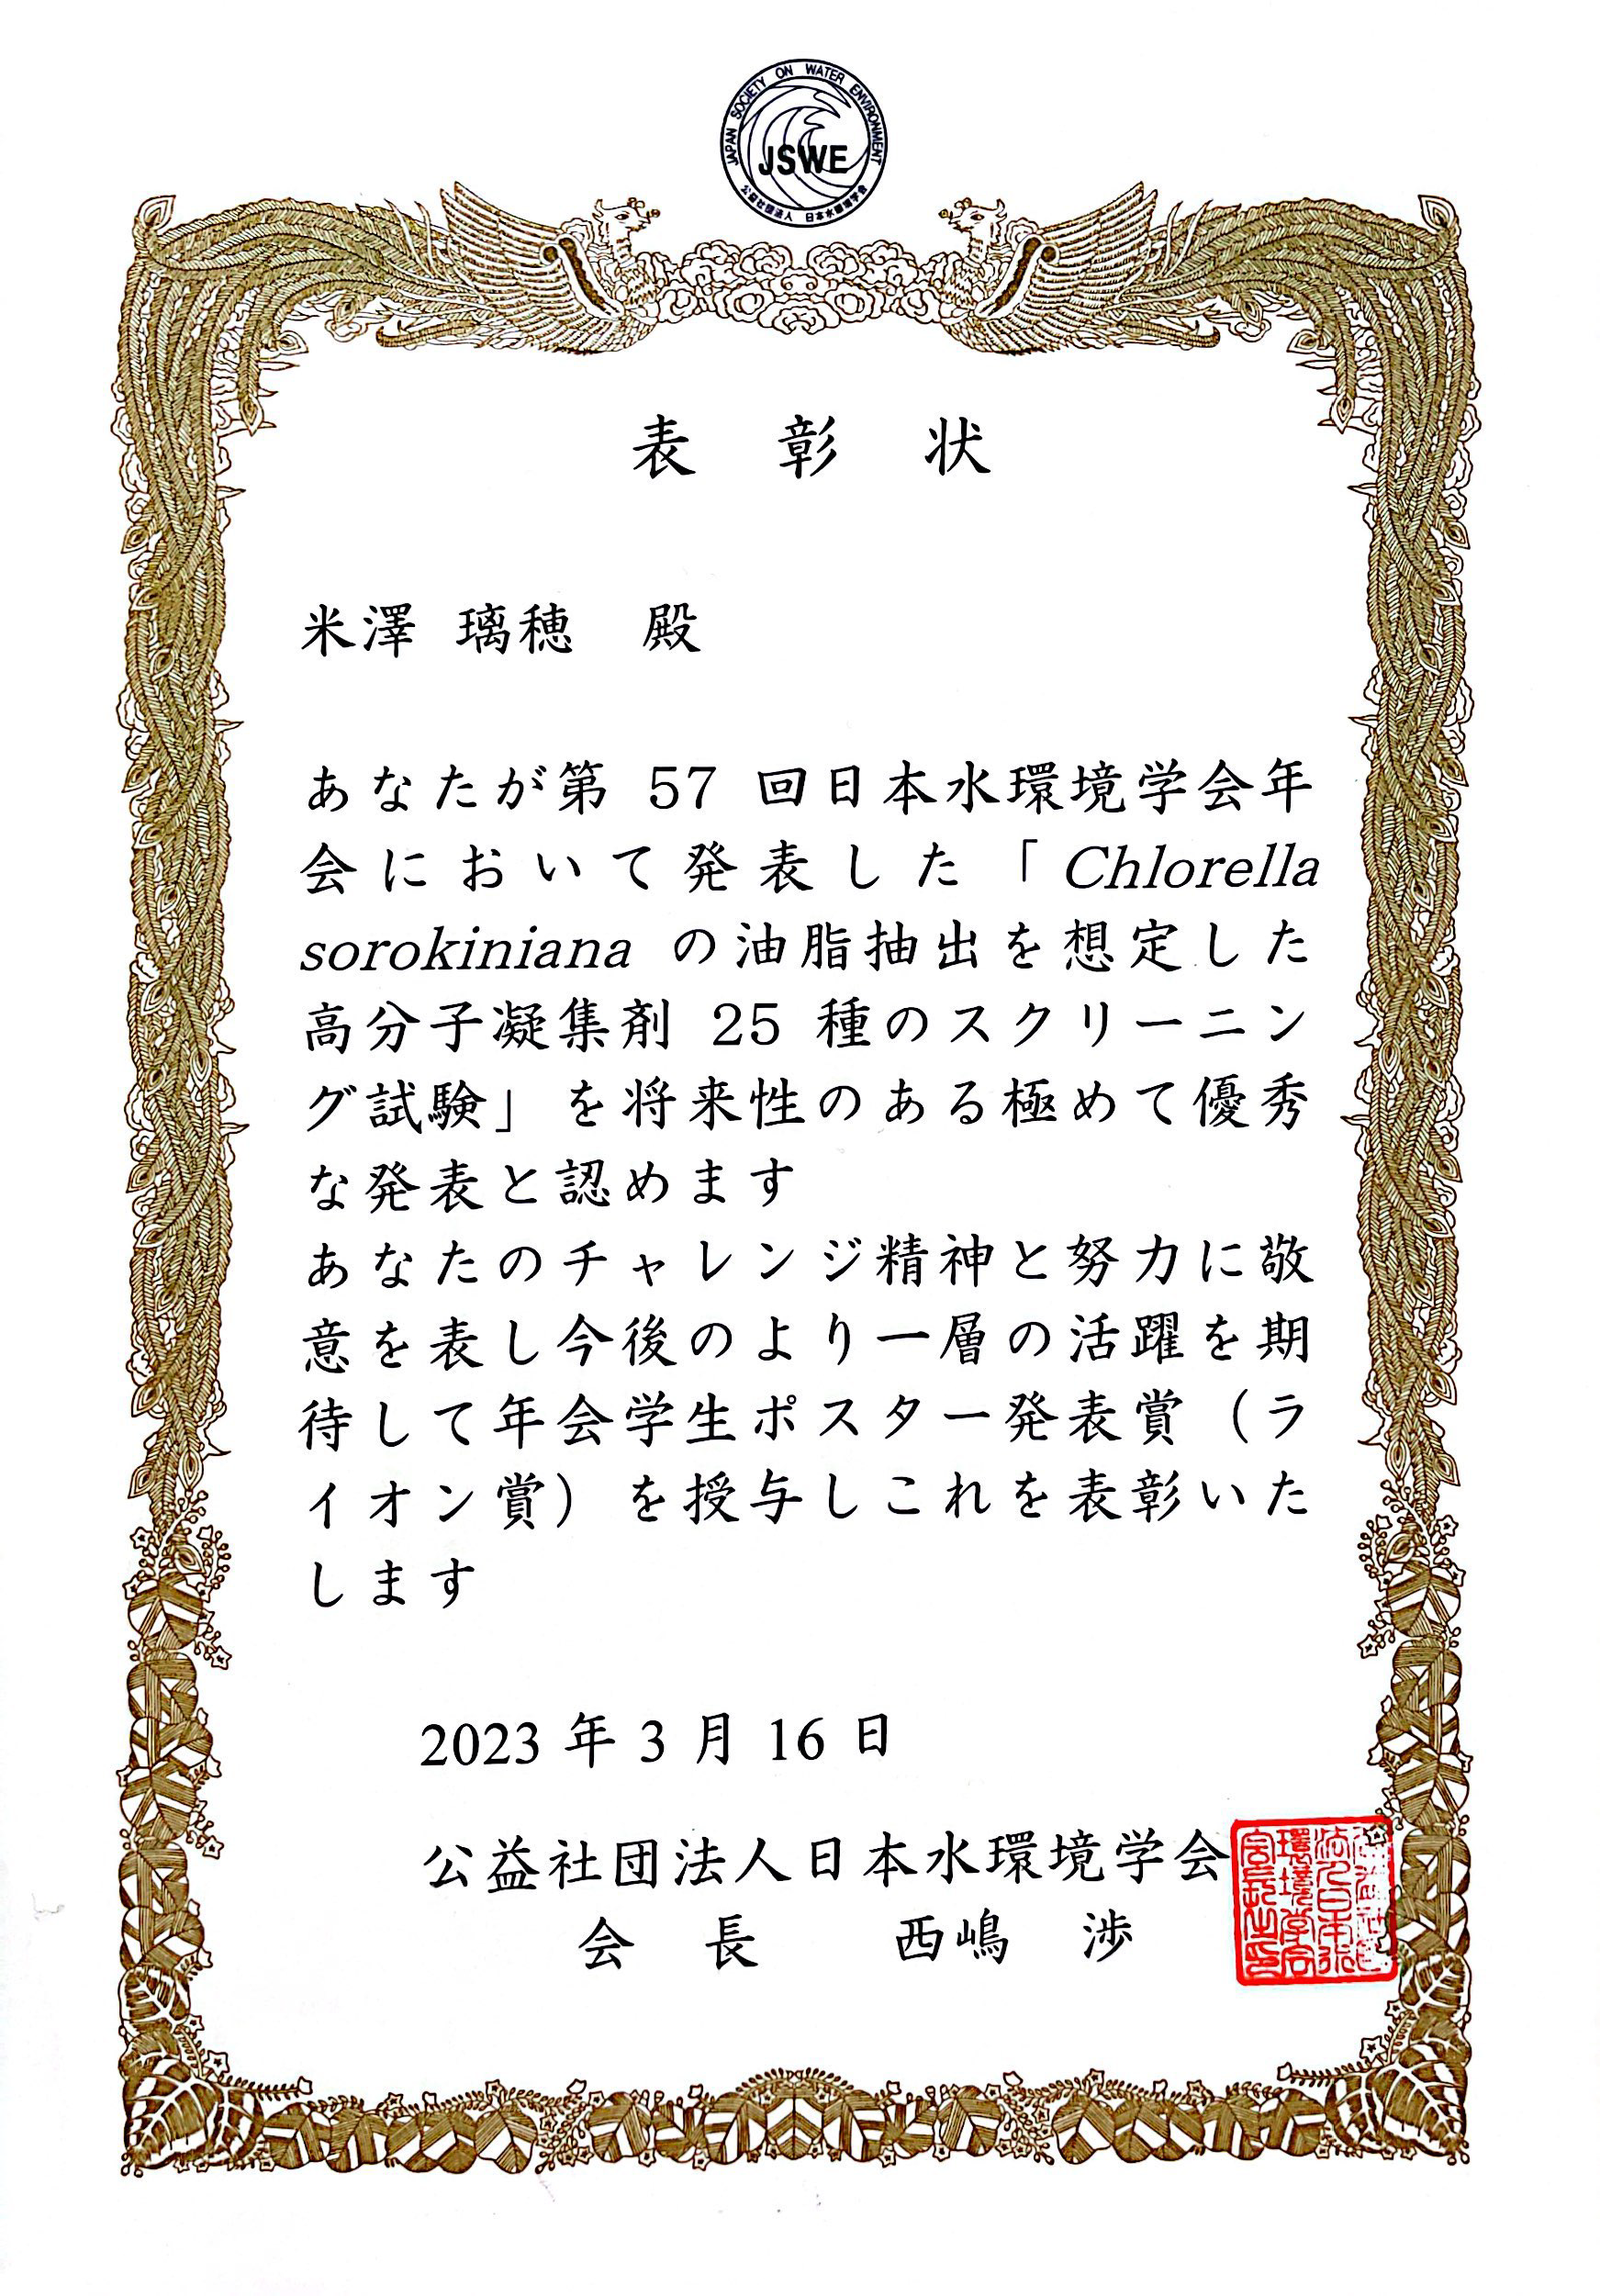 JAPAN SOCIETY ON WATER ENVIRONMENT
JSWE
公益社団法人 日本水環境学会
表 彰 状
米澤 璃穂 殿
あなたが第 57 回日本水環境学会年
会において発表した「Chlorella
sorokiniana の油脂抽出を想定した
高分子凝集剤 25 種のスクリーニン
グ試験」を将来性のある極めて優秀
な発表と認めます
あなたのチャレンジ精神と努力に敬
意を表し今後のより一層の活躍を期
待して年会学生ポスター発表賞（ラ
イオン賞）を授与しこれを表彰いた
します
2023 年 3 月 16 日
公益社団法人日本水環境学会
会 長 西嶋 渉